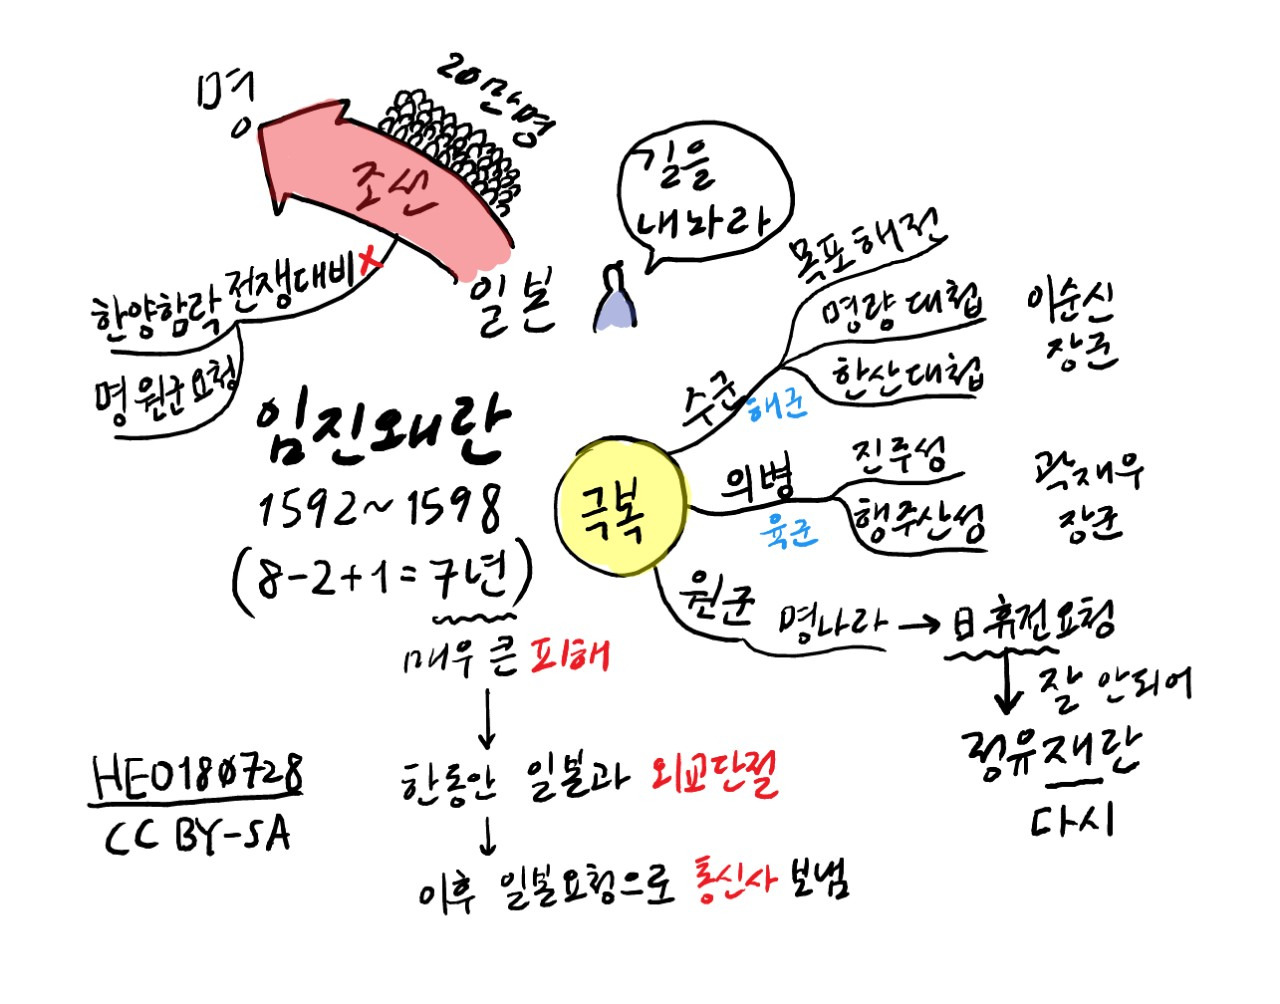 명
20만명
조선
일본
길을
내놔라
전쟁대비 X
한양함락
명 원군요청
임진왜란
1592~1598
(8-2+1=7년)
매우 큰 피해
한동안 일본과 외교단절
이후 일본요청으로 통신사 보냄
극복
수군
해군
목포해전
명량대첩
한산대첩
이순신
장군
의병
육군
진주성
행주산성
곽재우
장군
원군
명나라 → 日 휴전요청
잘 안되어
정유재란
다시
HE0180728
CC BY-SA